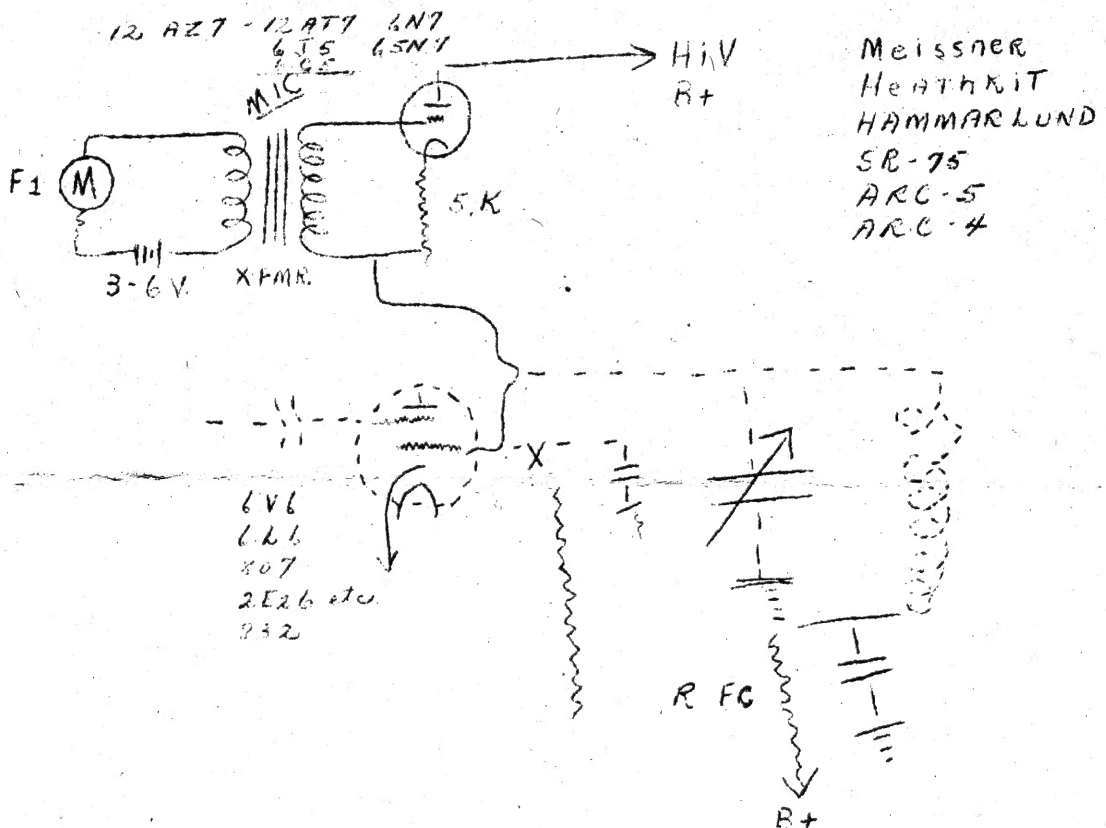 12 AZ7 - 12 AT7 6N7
6J5 6SN7
MIC
Hi,V
B+
Meissner
HeathKiT
HAMMARLUND
SR-75
ARC-5
ARC-4
F1
M
5.K
3-6 V.
XFMR.
X
6V6
6L6
807
2E26 etc
832
R FC
B+